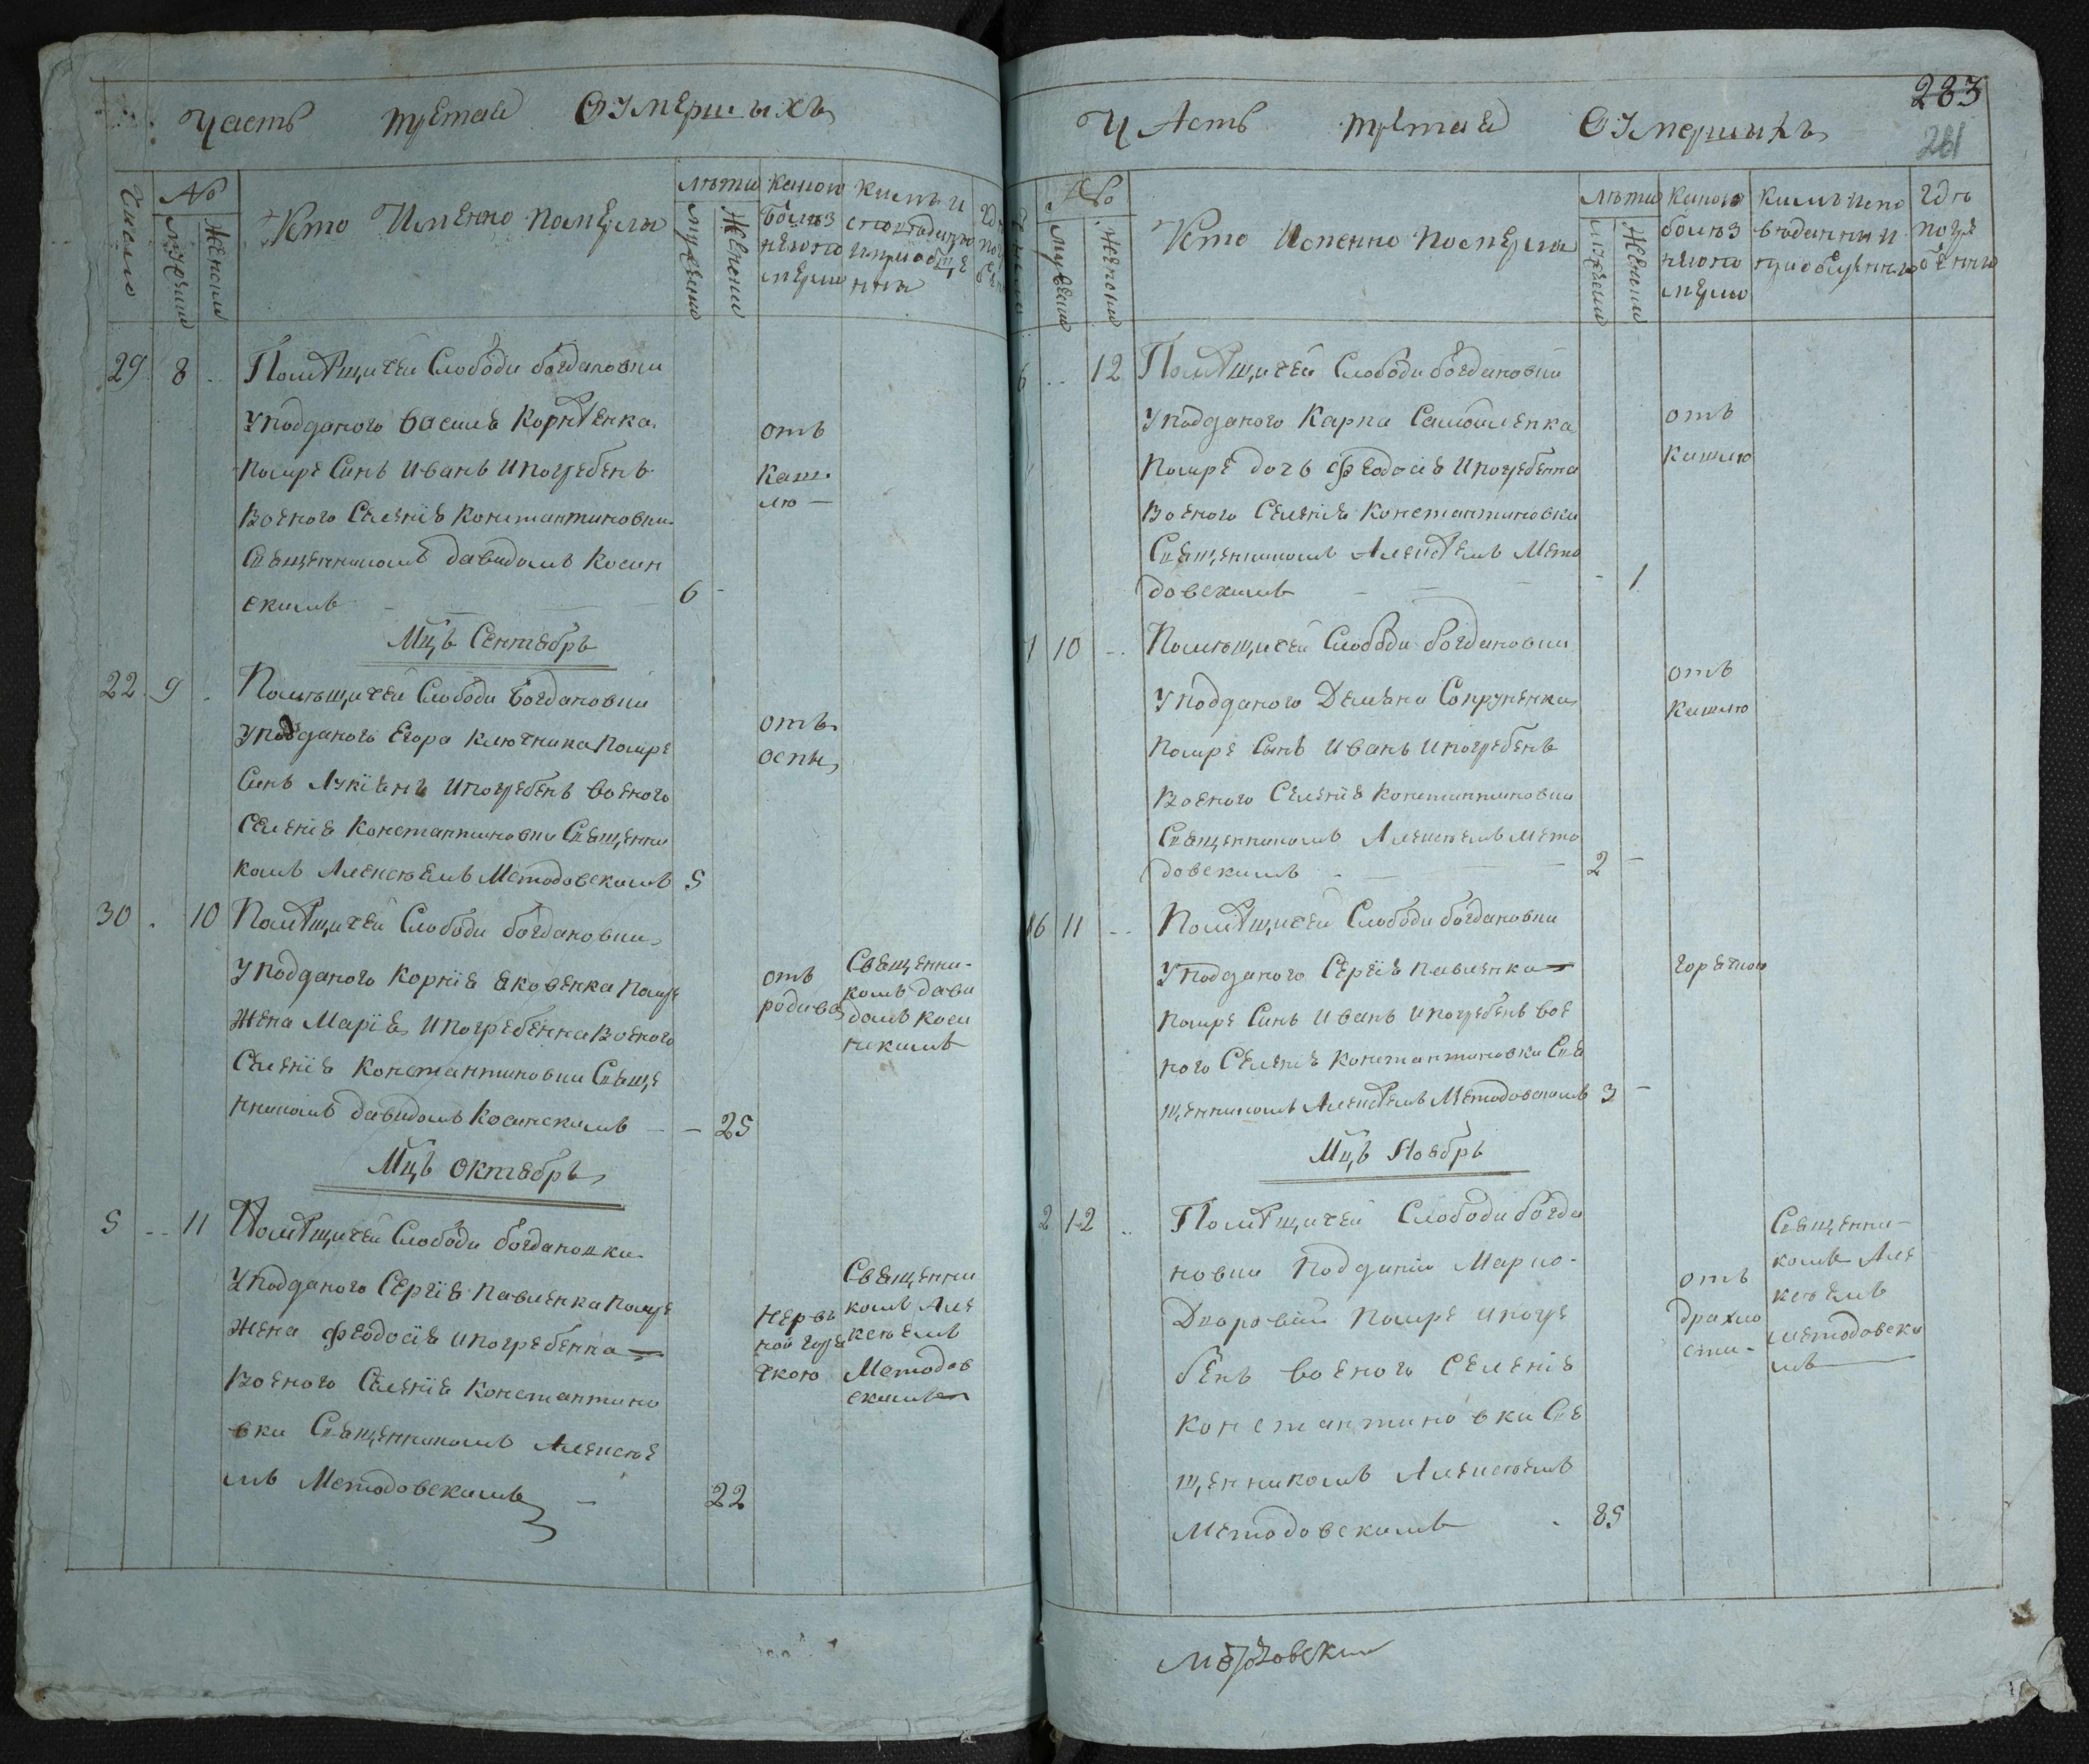 Часть третая О Умершихъ
Число
№
Мужеска
Женска
Кто Именно Померли
лѣта
Мужеска
Женска
какою
болѣз
нѣю по
мерли
кимъ и
сповѣданны
и приобще
нны
29 8 Помѣщичей Слободи богдановки
У подданого василя Корнѣенка
помре Синъ Иванъ и погребенъ
Военого Селенія Константиновки
Священникомъ давидомъ Косин
скимъ 6
отъ
каш
лю
Мцъ Сентябрь
22 9 Помѣщичей Слободи богдановки
У подданого Егора Ключника помре
Синъ Лукіянъ и погребенъ военого
Селенія Константиновки Священни
комъ Алексѣемъ Методовскимъ 5
отъ
оспи
30 10 Помѣщичей Слободи богдановки
У подданого Корнія Яковенка помре
Жена Марія и погребенна Военого
Селенія Константиновки Свяще
нникомъ давидомъ Косинскимъ 25
отъ
родива
Священни-
комъ дави
домъ Коси
нскимъ
Мцъ Октябрь
5 11 Помѣщичей Слободи богдановки
У подданого Сергія Павленка помре
Жена феодосія и погребенна
Военого Селенія Константино
вки Священникомъ Алексѣе
мъ Методовскимъ 22
нервъ
ной горя
чкою
Священни
комъ Але
ксѣемъ
Методов
скимъ
283
261
Часть третая О Умершихъ
№
Мужеска
Женска
Кто Именно Померли
лѣта
Мужеска
Женска
какою
болѣз
нѣю по
мерли
кимъ испо
вѣданни и
приобщенни
гдѣ
погре
бенни
6 12 Помѣщичей Слободи богдановки
У подданого Карпа Самойленка
помре дочь феодосія и погребенна
Военого Селенія Константиновки
Священникомъ Алексѣемъ Мето
довскимъ 1
отъ
кашлю
1 10 Помѣщичей Слободи богдановки
У подданого Демяна Сопруненка
помре Синъ Иванъ и погребенъ
Военого Селенія Константиновки
Священникомъ Алексѣемъ Мето
довскимъ 2
отъ
кашлю
16 11 Помѣщичей Слободи богдановки
У подданого Сергія Павленка
помре Синъ Иванъ и погребенъ вое
ного Селенія Константиновки Свя
щенникомъ Алексѣемъ Методовскимъ 3
горячкою
Мцъ Ноябрь
2 12 Помѣщичей Слободи богда
новки Подданій Марко
Дворовій помре и погре
бенъ военого Селенія
Константиновки Свя
щенникомъ Алексѣемъ
Методовскимъ 85
отъ
драхло
сти
Священни-
комъ Але
ксѣемъ
Методовски
мъ